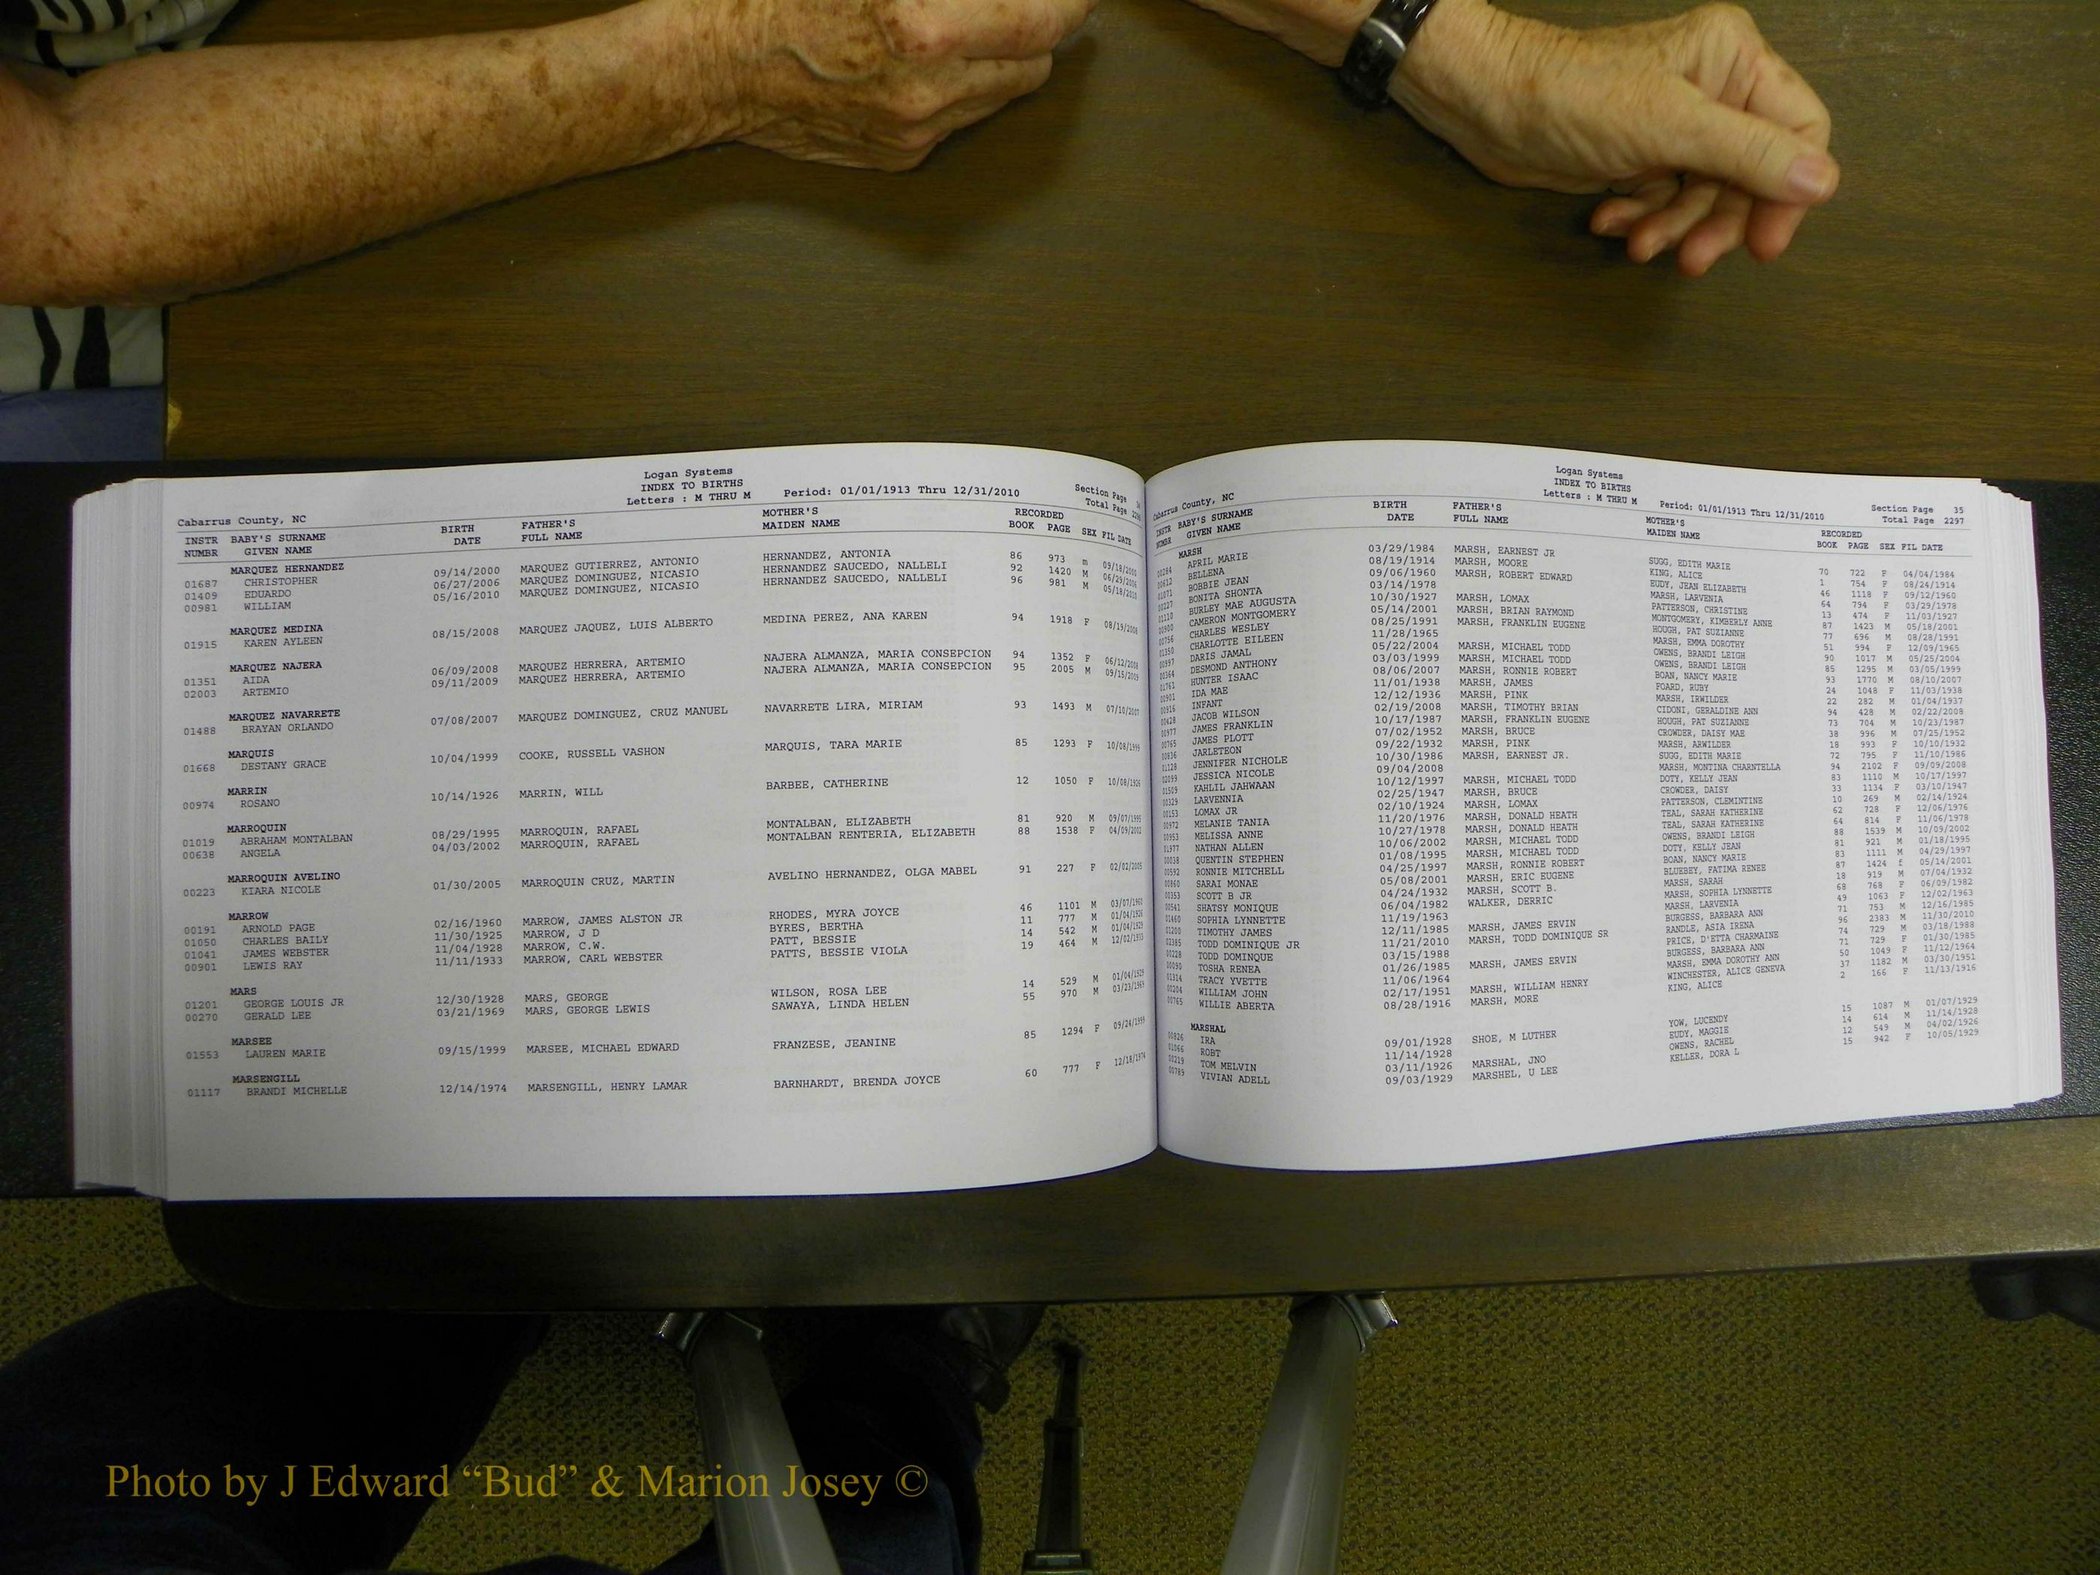 Logan Systems
INDEX TO BIRTHS
Letters : M THRU M Period: 01/01/1913 Thru 12/31/2010
Section Page 34
Total Page 2296
Cabarrus County, NC
INSTR BABY'S SURNAME BIRTH FATHER'S MOTHER'S RECORDED
NUMBR GIVEN NAME DATE FULL NAME MAIDEN NAME BOOK PAGE SEX FIL DATE
MARQUEZ HERNANDEZ
01687 CHRISTOPHER 09/14/2000 MARQUEZ GUTIERREZ, ANTONIO HERNANDEZ, ANTONIA 86 973 m 09/18/2000
01409 EDUARDO 06/27/2006 MARQUEZ DOMINGUEZ, NICASIO HERNANDEZ SAUCEDO, NALLELI 92 1420 M 06/29/2006
00981 WILLIAM 05/16/2010 MARQUEZ DOMINGUEZ, NICASIO HERNANDEZ SAUCEDO, NALLELI 96 981 M 05/18/2010
MARQUEZ MEDINA
01915 KAREN AYLEEN 08/15/2008 MARQUEZ JAQUEZ, LUIS ALBERTO MEDINA PEREZ, ANA KAREN 94 1918 F 08/19/2008
MARQUEZ NAJERA
01351 AIDA 06/09/2008 MARQUEZ HERRERA, ARTEMIO NAJERA ALMANZA, MARIA CONSEPCION 94 1352 F 06/12/2008
02003 ARTEMIO 09/11/2009 MARQUEZ HERRERA, ARTEMIO NAJERA ALMANZA, MARIA CONSEPCION 95 2005 M 09/15/2009
MARQUEZ NAVARRETE
01488 BRAYAN ORLANDO 07/08/2007 MARQUEZ DOMINGUEZ, CRUZ MANUEL NAVARRETE LIRA, MIRIAM 93 1493 M 07/10/2007
MARQUIS
01668 DESTANY GRACE 10/04/1999 COOKE, RUSSELL VASHON MARQUIS, TARA MARIE 85 1293 F 10/08/1999
MARRIN
00974 ROSANO 10/14/1926 MARRIN, WILL BARBEE, CATHERINE 12 1050 F 10/08/1926
MARROQUIN
01019 ABRAHAM MONTALBAN 08/29/1995 MARROQUIN, RAFAEL MONTALBAN, ELIZABETH 81 920 M 09/07/1995
00638 ANGELA 04/03/2002 MARROQUIN, RAFAEL MONTALBAN RENTERIA, ELIZABETH 88 1538 F 04/09/2002
MARROQUIN AVELINO
00223 KIARA NICOLE 01/30/2005 MARROQUIN CRUZ, MARTIN AVELINO HERNANDEZ, OLGA MABEL 91 227 F 02/02/2005
MARROW
00191 ARNOLD PAGE 02/16/1960 MARROW, JAMES ALSTON JR RHODES, MYRA JOYCE 46 1101 M 03/07/1960
01050 CHARLES BAILY 11/30/1925 MARROW, J D BYRES, BERTHA 11 777 M 01/04/1926
01041 JAMES WEBSTER 11/04/1928 MARROW, C.W. PATT, BESSIE 14 542 M 01/04/1929
00901 LEWIS RAY 11/11/1933 MARROW, CARL WEBSTER PATTS, BESSIE VIOLA 19 464 M 12/02/1933
MARS
01201 GEORGE LOUIS JR 12/30/1928 MARS, GEORGE WILSON, ROSA LEE 14 529 M 01/04/1929
00270 GERALD LEE 03/21/1969 MARS, GEORGE LEWIS SAWAYA, LINDA HELEN 55 970 M 03/23/1969
MARSEE
01553 LAUREN MARIE 09/15/1999 MARSEE, MICHAEL EDWARD FRANZESE, JEANINE 85 1294 F 09/24/1999
MARSENGILL
01117 BRANDI MICHELLE 12/14/1974 MARSENGILL, HENRY LAMAR BARNHARDT, BRENDA JOYCE 60 777 F 12/18/1974
Logan Systems
INDEX TO BIRTHS
Letters : M THRU M Period: 01/01/1913 Thru 12/31/2010
Section Page 35
Total Page 2297
Cabarrus County, NC
INSTR BABY'S SURNAME BIRTH FATHER'S MOTHER'S RECORDED
NUMBR GIVEN NAME DATE FULL NAME MAIDEN NAME BOOK PAGE SEX FIL DATE
MARSH
00284 APRIL MARIE 03/29/1984 MARSH, EARNEST JR SUGG, EDITH MARIE 70 722 F 04/04/1984
00612 BELLENA 08/19/1914 MARSH, MOORE KING, ALICE 1 754 F 08/24/1914
01071 BOBBIE JEAN 09/06/1960 MARSH, ROBERT EDWARD EUDY, JEAN ELIZABETH 46 1118 F 09/12/1960
00227 BONITA SHONTA 03/14/1978 MARSH, LARVENIA 64 794 F 03/29/1978
01110 BURLEY MAE AUGUSTA 10/30/1927 MARSH, LOMAX PATTERSON, CHRISTINE 13 474 F 11/03/1927
00900 CAMERON MONTGOMERY 05/14/2001 MARSH, BRIAN RAYMOND MONTGOMERY, KIMBERLY ANNE 87 1423 M 05/18/2001
00756 CHARLES WESLEY 08/25/1991 MARSH, FRANKLIN EUGENE HOUGH, PAT SUZIANNE 77 696 M 08/28/1991
01350 CHARLOTTE EILEEN 11/28/1965 MARSH, EMMA DOROTHY 51 994 F 12/09/1965
00997 DARIS JAMAL 05/22/2004 MARSH, MICHAEL TODD OWENS, BRANDI LEIGH 90 1017 M 05/25/2004
00364 DESMOND ANTHONY 03/03/1999 MARSH, MICHAEL TODD OWENS, BRANDI LEIGH 85 1295 M 03/05/1999
01761 HUNTER ISAAC 08/06/2007 MARSH, RONNIE ROBERT BOAN, NANCY MARIE 93 1770 M 08/10/2007
00901 IDA MAE 11/01/1938 MARSH, JAMES FOARD, RUBY 24 1048 F 11/03/1938
00916 INFANT 12/12/1936 MARSH, PINK MARSH, IRWILDER 22 282 M 01/04/1937
00428 JACOB WILSON 02/19/2008 MARSH, TIMOTHY BRIAN CIDONI, GERALDINE ANN 94 428 M 02/22/2008
00977 JAMES FRANKLIN 10/17/1987 MARSH, FRANKLIN EUGENE HOUGH, PAT SUZIANNE 73 704 M 10/23/1987
00765 JAMES PLOTT 07/02/1952 MARSH, BRUCE CROWDER, DAISY MAE 38 996 M 07/25/1952
00836 JARLETEON 09/22/1932 MARSH, PINK MARSH, ARWILDER 18 993 F 10/10/1932
01128 JENNIFER NICHOLE 10/30/1986 MARSH, EARNEST JR. SUGG, EDITH MARIE 72 795 F 11/10/1986
02099 JESSICA NICOLE 09/04/2008 MARSH, MONTINA CHARNTELLA 94 2102 F 09/09/2008
01509 KAHLIL JAHWAAN 10/12/1997 MARSH, MICHAEL TODD DOTY, KELLY JEAN 83 1110 M 10/17/1997
00329 LARVENNIA 02/25/1947 MARSH, BRUCE CROWDER, DAISY 33 1134 F 03/10/1947
00153 LOMAX JR 02/10/1924 MARSH, LOMAX PATTERSON, CLEMINTINE 10 269 M 02/14/1924
00972 MELANIE TANIA 11/20/1976 MARSH, DONALD HEATH TEAL, SARAH KATHERINE 62 728 F 12/06/1976
00953 MELISSA ANNE 10/27/1978 MARSH, DONALD HEATH TEAL, SARAH KATHERINE 64 814 F 11/06/1978
01977 NATHAN ALLEN 10/06/2002 MARSH, MICHAEL TODD OWENS, BRANDI LEIGH 88 1539 M 10/09/2002
00038 QUENTIN STEPHEN 01/08/1995 MARSH, MICHAEL TODD DOTY, KELLY JEAN 81 921 M 01/18/1995
00592 RONNIE MITCHELL 04/25/1997 MARSH, RONNIE ROBERT BOAN, NANCY MARIE 83 1111 M 04/29/1997
00860 SARAI MONAE 05/08/2001 MARSH, ERIC EUGENE BLUEBEY, FATIMA RENEE 87 1424 f 05/14/2001
00353 SCOTT B JR 04/24/1932 MARSH, SCOTT B. MARSH, SARAH 18 919 M 07/04/1932
00541 SHATSY MONIQUE 06/04/1982 WALKER, DERRIC MARSH, SOPHIA LYNNETTE 68 768 F 06/09/1982
01460 SOPHIA LYNNETTE 11/19/1963 MARSH, LARVENIA 49 1063 F 12/02/1963
01200 TIMOTHY JAMES 12/11/1985 MARSH, JAMES ERVIN BURGESS, BARBARA ANN 71 753 M 12/16/1985
02385 TODD DOMINIQUE JR 11/21/2010 MARSH, TODD DOMINIQUE SR RANDLE, ASIA IRENA 96 2383 M 11/30/2010
00228 TODD DOMINQUE 03/15/1988 PRICE, D'ETTA CHARMAINE 74 729 M 03/18/1988
00090 TOSHA RENEA 01/26/1985 MARSH, JAMES ERVIN BURGESS, BARBARA ANN 71 729 F 01/30/1985
01314 TRACY YVETTE 11/06/1964 MARSH, EMMA DOROTHY ANN 50 1049 F 11/12/1964
00204 WILLIAM JOHN 02/17/1951 MARSH, WILLIAM HENRY WINCHESTER, ALICE GENEVA 37 1182 M 03/30/1951
00765 WILLIE ABERTA 08/28/1916 MARSH, MORE KING, ALICE 2 166 F 11/13/1916
MARSHAL
00826 IRA 09/01/1928 SHOE, M LUTHER YOW, LUCENDY 15 1087 M 01/07/1929
01066 ROBT 11/14/1928 EUDY, MAGGIE 14 614 M 11/14/1928
00219 TOM MELVIN 03/11/1926 MARSHAL, JNO OWENS, RACHEL 12 549 M 04/02/1926
00789 VIVIAN ADELL 09/03/1929 MARSHEL, U LEE KELLER, DORA L 15 942 F 10/05/1929
Photo by J Edward “Bud” & Marion Josey ©